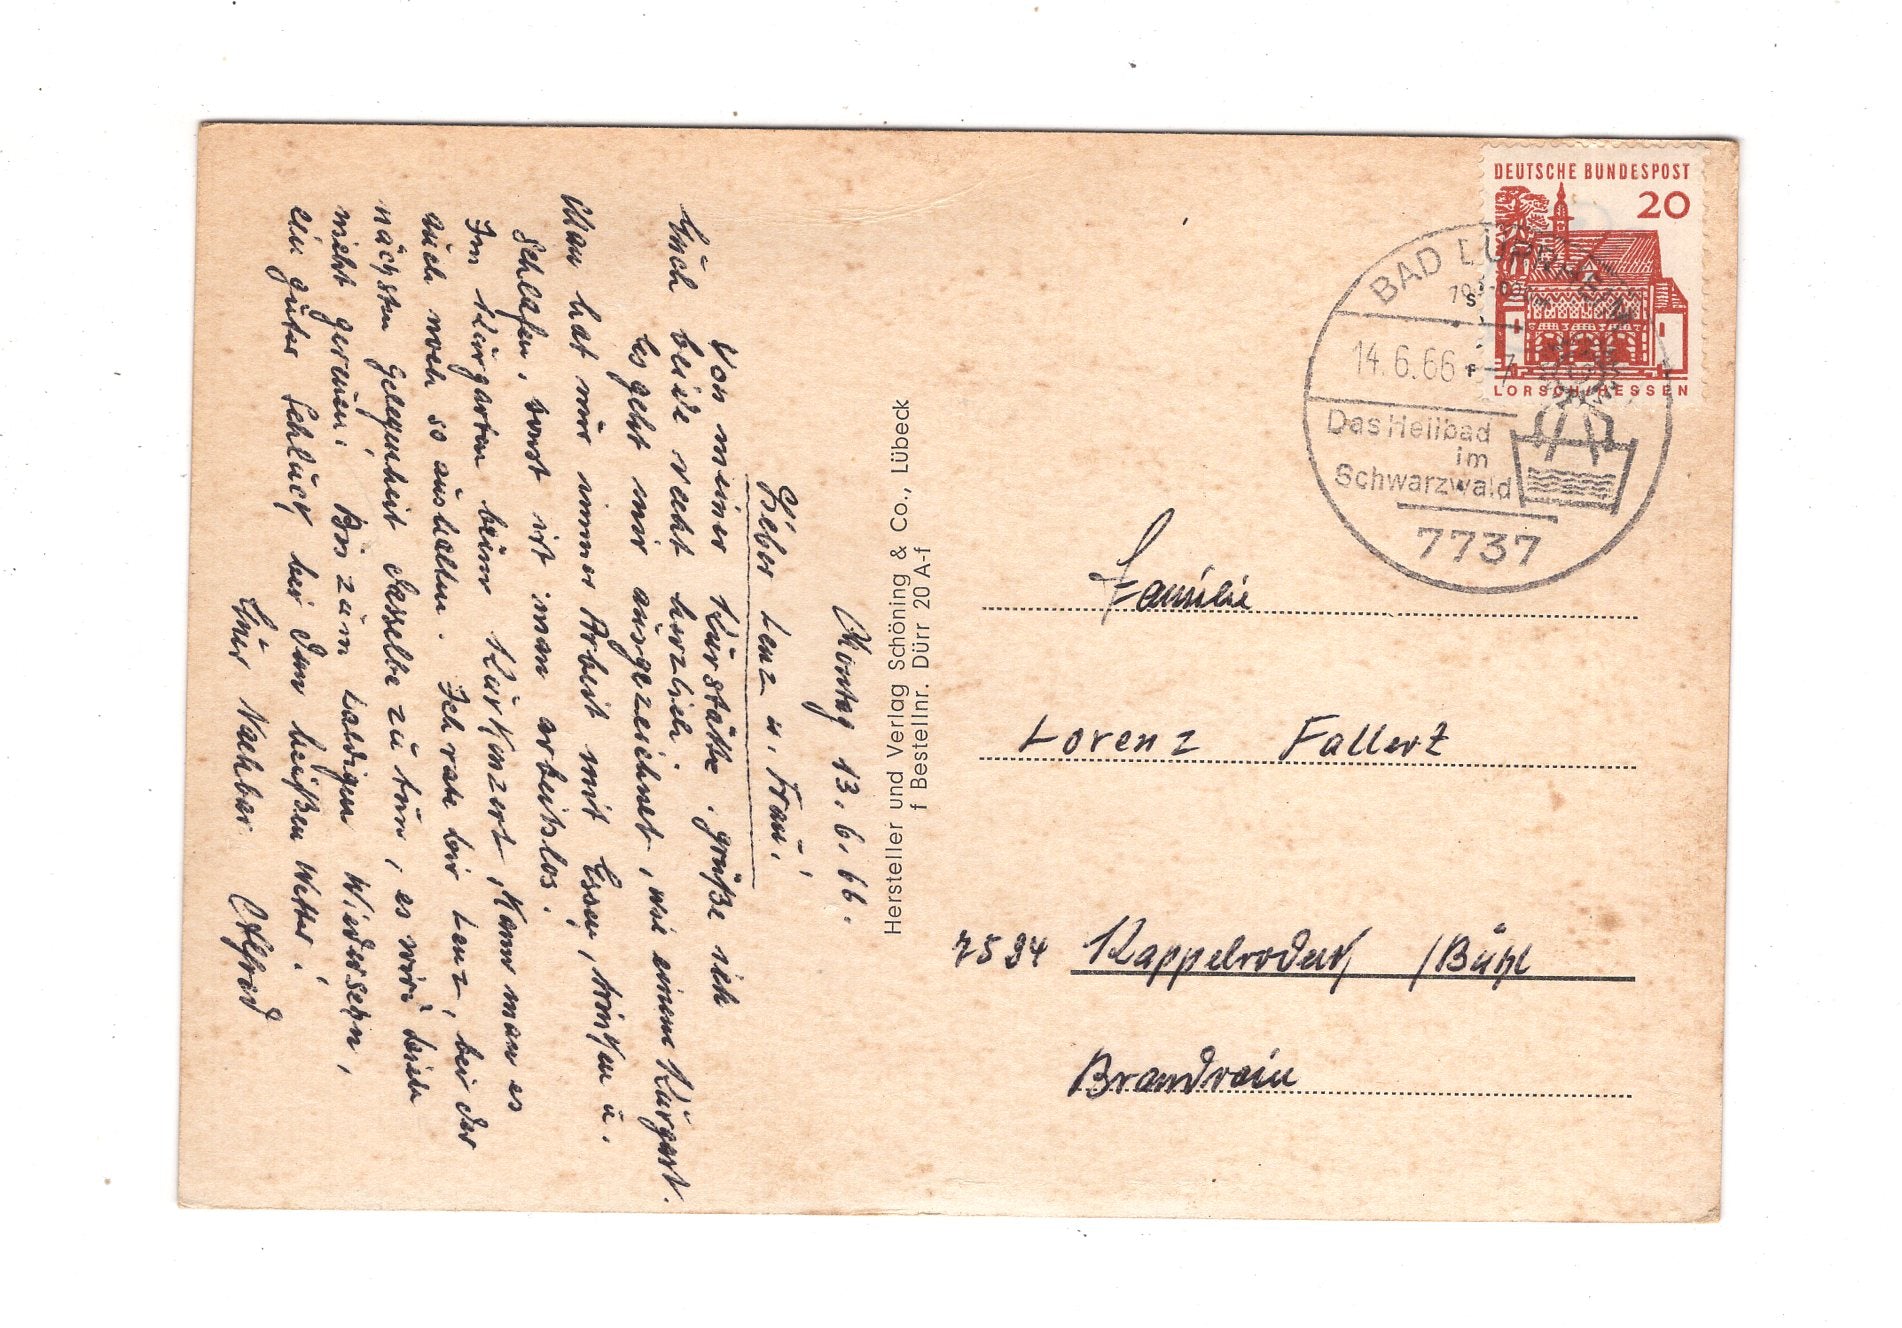 Montag 13.6.66.
Lieber Lenz u. Frau!
Von meiner Kurstätte grüße ich
Euch beide recht herzlich.
Es geht mir ausgezeichnet, wie einem Kurgast.
Man hat nur immer Arbeit mit Essen, trinken u.
schlafen, sonst ist man arbeitslos.
Im Kurgarten beim Kurkonzert, kann man es
auch noch so aushalten. Ich rate dir Lenz, bei der
nächsten Gelegenheit dasselbe zu tun, es wird dich
nicht gereuen! Bis zum baldigen Wiedersehn,
ein guter Schluck bei dem heißen Wetter!
Euer Nachbar Alfred
Hersteller und Verlag Schöning & Co., Lübeck
f Bestellnr. Dürr 20 A-f
DEUTSCHE BUNDESPOST
20
LORSCH/HESSEN
BAD
14.6.66
Das Heilbad
im
Schwarzwald
7737
Familie
Lorenz Fallert
7594 Kappelrodeck /Bühl
Brandrain